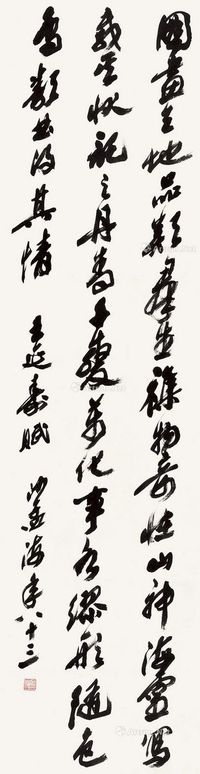 圖畫天地品類羣生雜物奇怪山神海靈寫
載其狀託之丹青千變萬化事各繆形隨色
象類曲得其情 王延壽賦 沙孟海年八十三